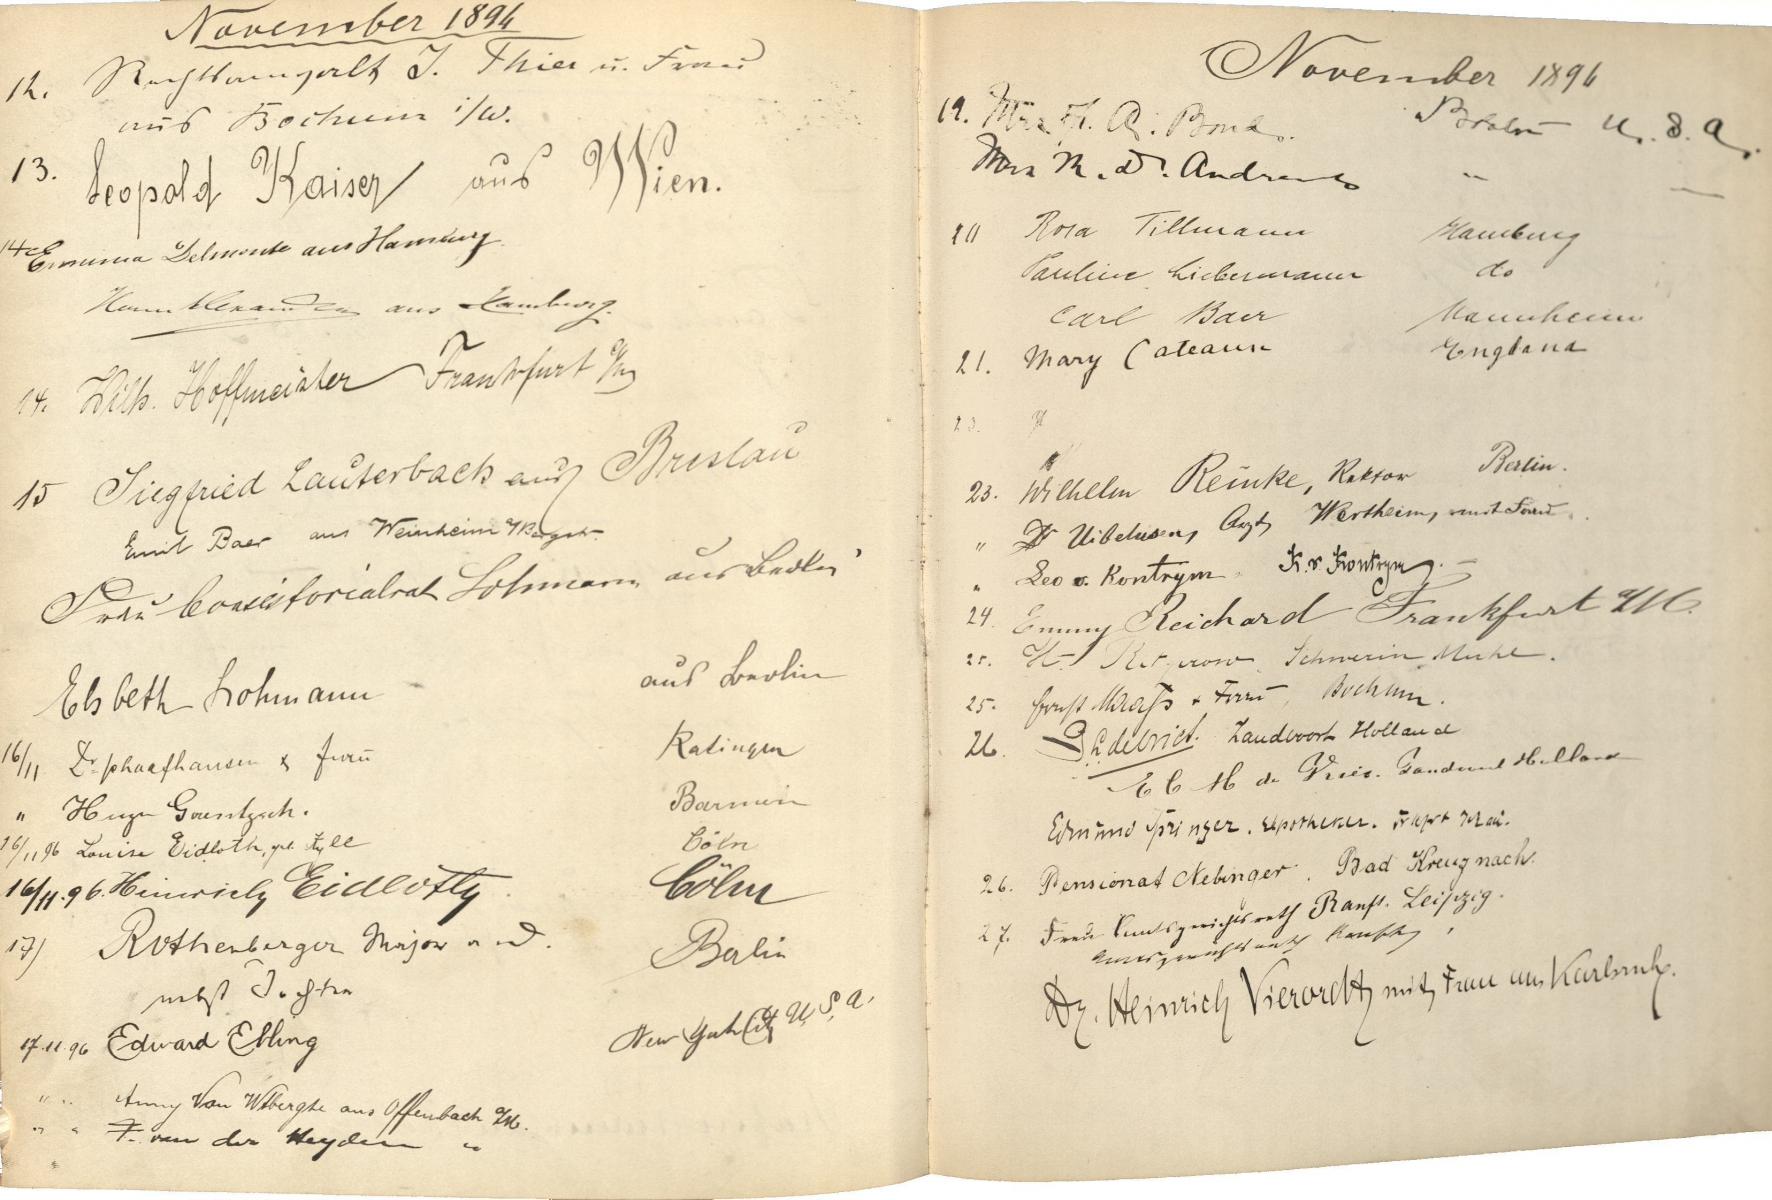 November 1896
12. Rechtsanwalt J. Thier u. Frau
aus Bochum i/W.
13. Leopold Kaiser aus Wien.
14. Emma Delmonte aus Hamburg
aus Hamburg.
14. Wilh. Hoffmeister Frankfurt a/M
15 Siegfried Lauterbach aus Breslau
Emil Baer aus Weinheim a/Bergstr.
Frau Consistorialrat Lohmann aus Berlin
Elsbeth Lohmann aus Berlin
16/11 Dr. Schaafhausen & Frau Ratingen
" Hugo Barmen
16/11 96 Louise Eidloth, geb. Cöln
16/11. 96. Heinrich Eidloth Cöln
17) Rothenberger Major a. D. Berlin
nebst Tochter
17.11.96 Edward Ebling New York City U. S. A.
" " Anny Van aus Offenbach a/M.
" " F. van der Heyden "
November 1896
19. Mrs. A. Bond. Boston U. S. A.
Mrs R. D. Andrews " —
20 Rosa Tillmann Hamburg
Pauline Liebermann do
Carl Baer Mannheim
21. Mary England
23.
23. Wilhelm Reinke, Rektor Berlin.
" Dr Arzt, Wertheim, mit Frau.
" Leo v. Kontrym K. v. Kontrym.
24. Emmy Reichard Frankfurt a/M.
25. Schwerin Meckl.
25. Ernst Maaß & Frau, Bochum.
26. Zandvoort Holland
E C M de Vries. Holland
Edmund Springer. Apotheker. Frkfrt Main.
26. Pensionat Nebinger. Bad Kreuznach.
27. Frau Amtsgerichtsrath Ranft. Leipzig.
Amtsgerichtsrath Ranft,
Dr. Heinrich Vierordt mit Frau aus Karlsruhe.